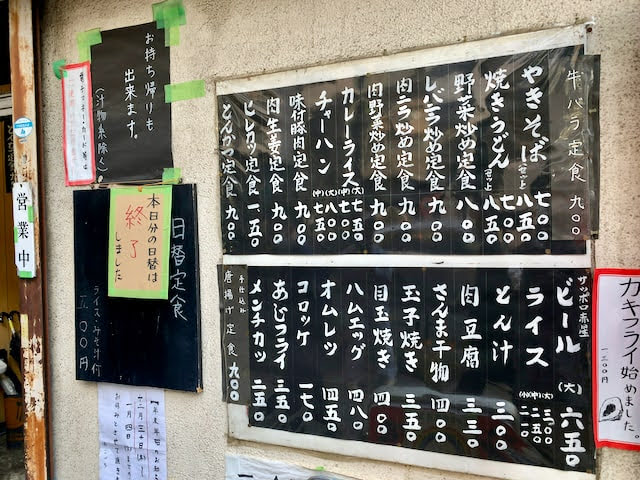 お持ち帰りも
出来ます。
(汁物系除く。)
営業中
本日分の日替は
終了
しました
日替定食
ライス・みそ汁付
五〇〇円
牛バラ定食 九〇〇
やきそば 七〇〇
セット 八五〇
焼きうどん 七五〇
セット 八五〇
野菜炒め定食 八〇〇
レバニラ炒め定食 九〇〇
肉ニラ炒め定食 九〇〇
肉野菜炒め定食 九〇〇
カレーライス (大) 七五〇
(中) 七〇〇
チャーハン (大) 八〇〇
(中) 七五〇
味付豚肉定食 九〇〇
肉生姜定食 九〇〇
ヒレカツ定食 一一五〇
とんかつ定食 九〇〇
サッポロ赤星
ビール (大) 六五〇
ライス (大) 三〇〇
(中) 二五〇
(小) 二一〇
とん汁 三〇〇
肉豆腐 三三〇
さんま干物 四〇〇
玉子焼き 三五〇
目玉焼き 四〇〇
ハムエッグ 四八〇
オムレツ 四五〇
コロッケ 一七〇
あじフライ 三五〇
メンチカツ 二五〇
手仕込み
唐揚げ定食 九〇〇
カキフライ始めました。
一三〇〇円
【年末年始のお知らせ】
十二月三十日
一月四日
お休みとさせて頂きま